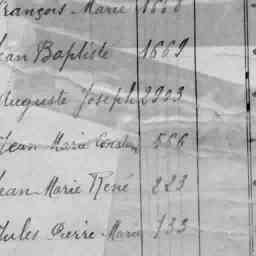 François Marie
Jean Baptiste 1669
Auguste Joseph 2993
Jean Marie 556
Jean Marie René 223
Jules Pierre Marie 133